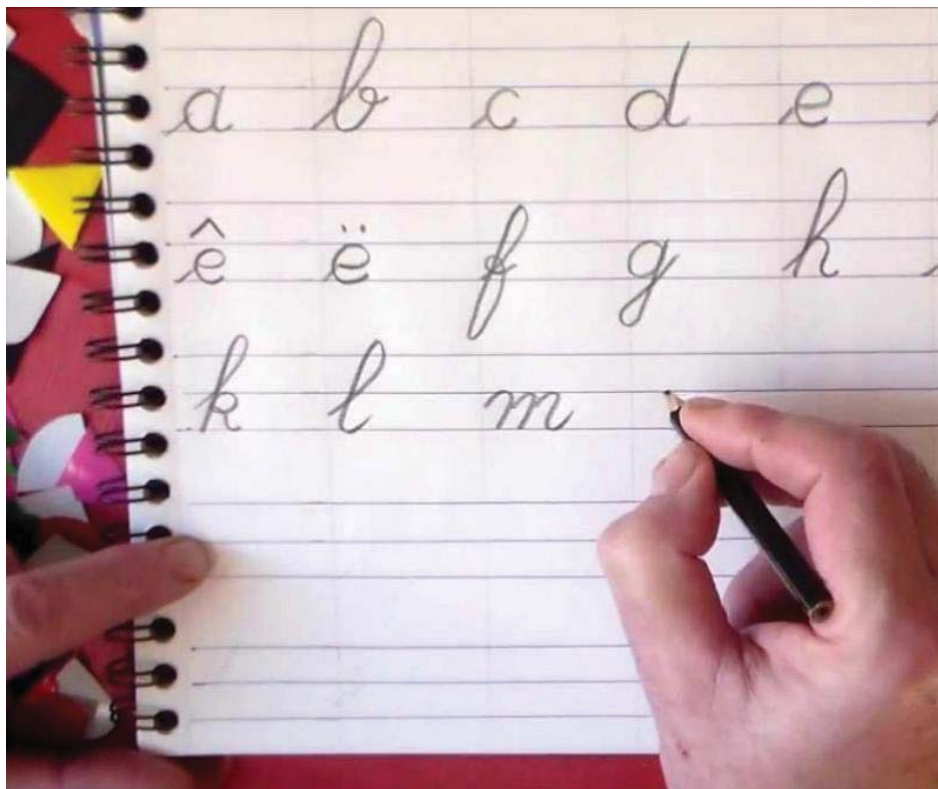 a b c d e
ê ë f g h
k l m